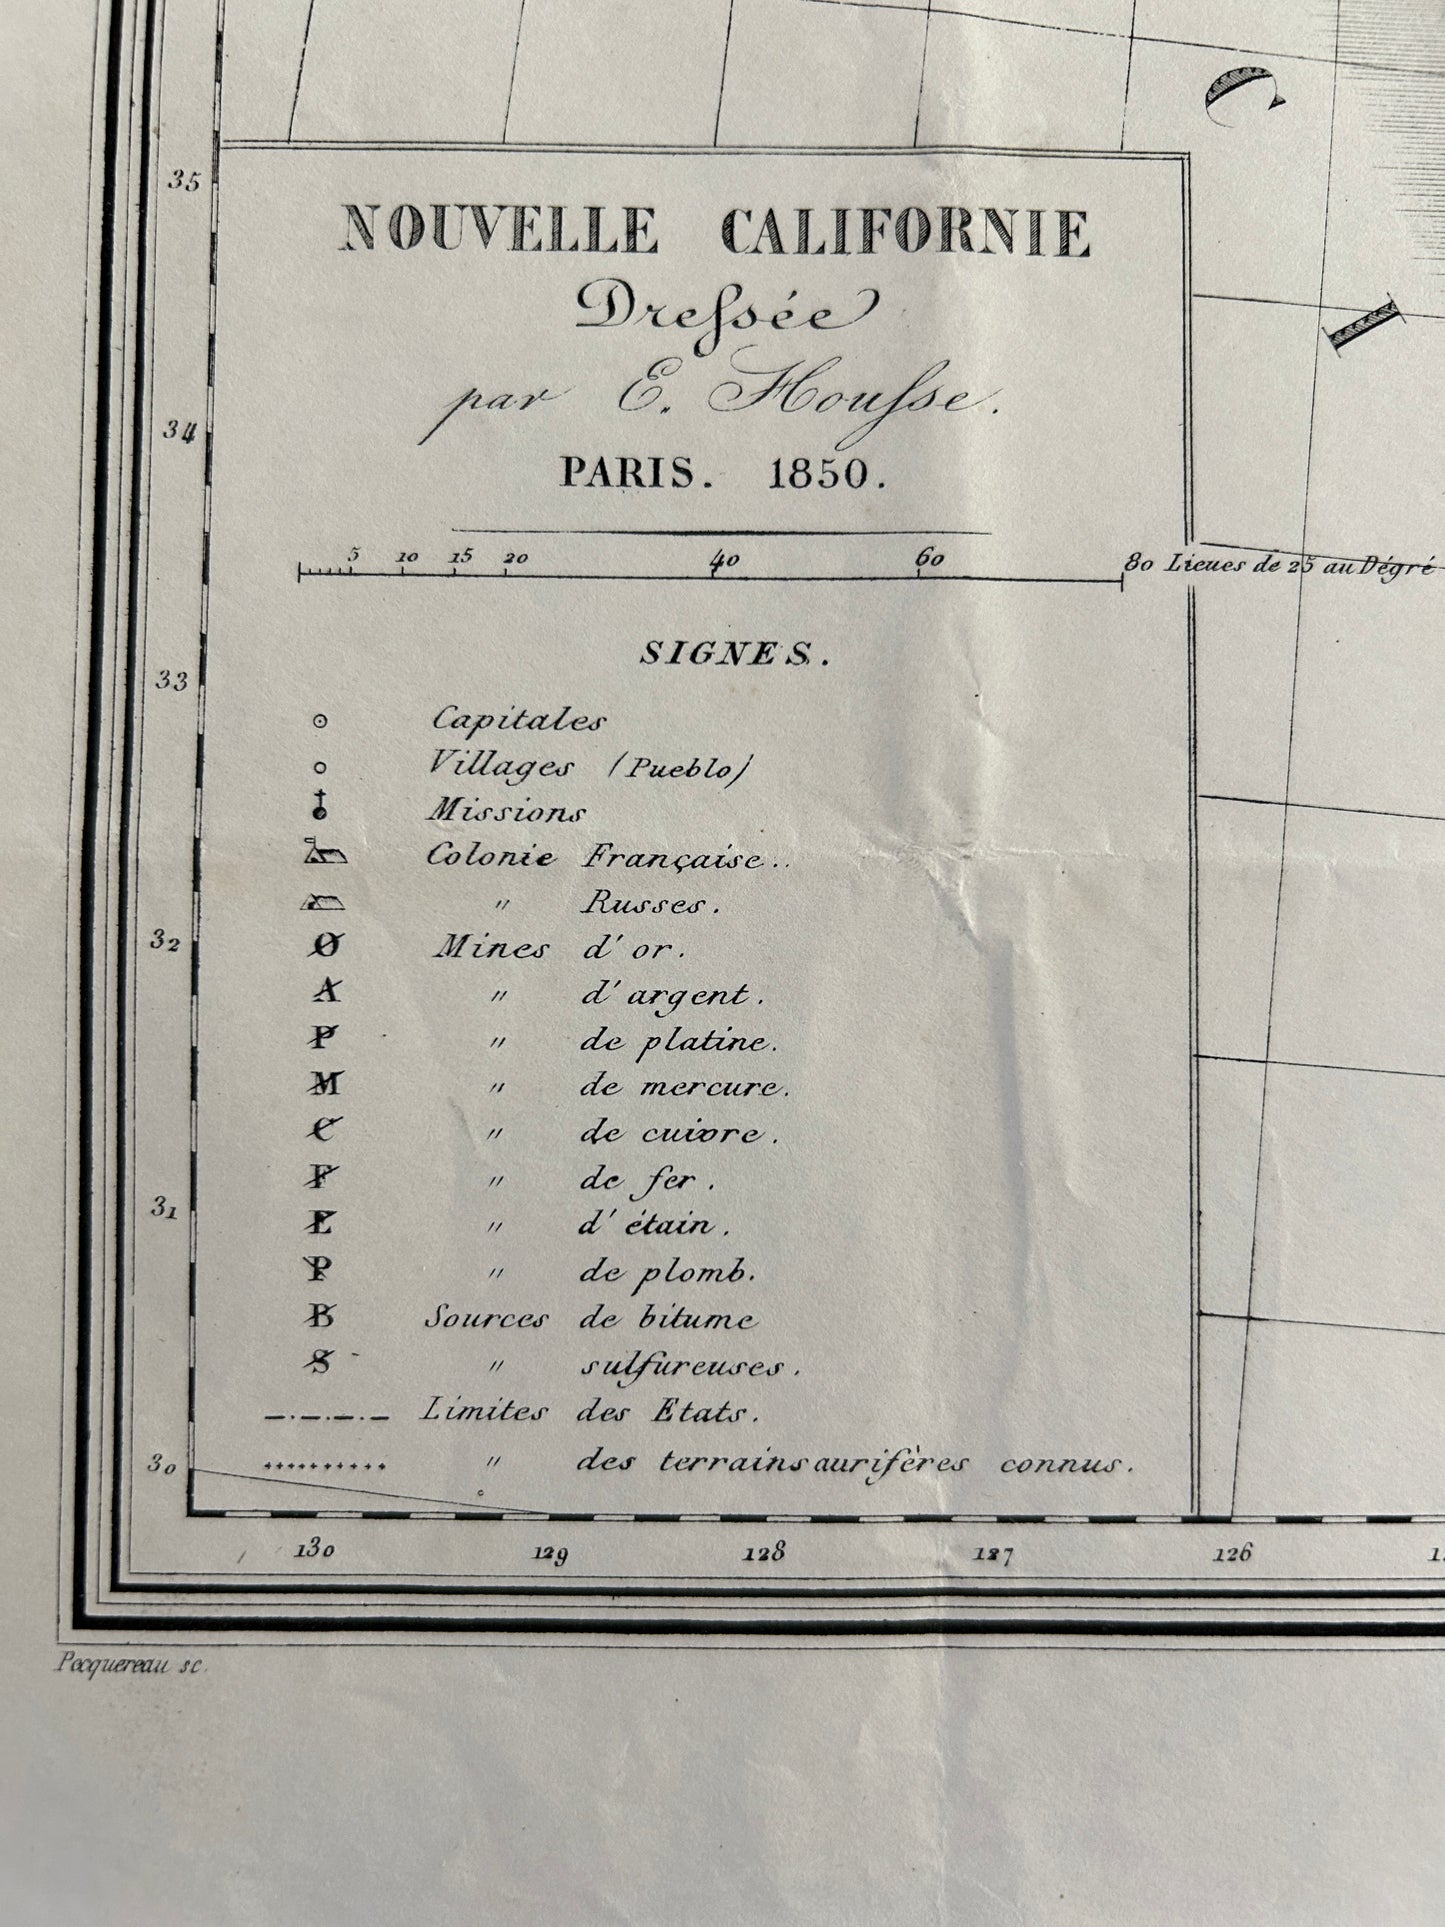 C
I
35
NOUVELLE CALIFORNIE
Dressée
par E. Housse.
34
PARIS. 1850.
5 10 15 20 40 60 80 Lieues de 25 au Dégré
SIGNES.
33
Capitales
Villages (Pueblo)
Missions
Colonie Française..
" Russes.
32
O Mines d'or.
A " d'argent.
P " de platine.
M " de mercure.
C " de cuivre.
F " de fer.
31
E " d'étain.
P " de plomb.
B Sources de bitume
S " sulfureuses.
Limites des Etats.
30
" des terrains aurifères connus.
130 129 128 127 126
Pocquereau sc.